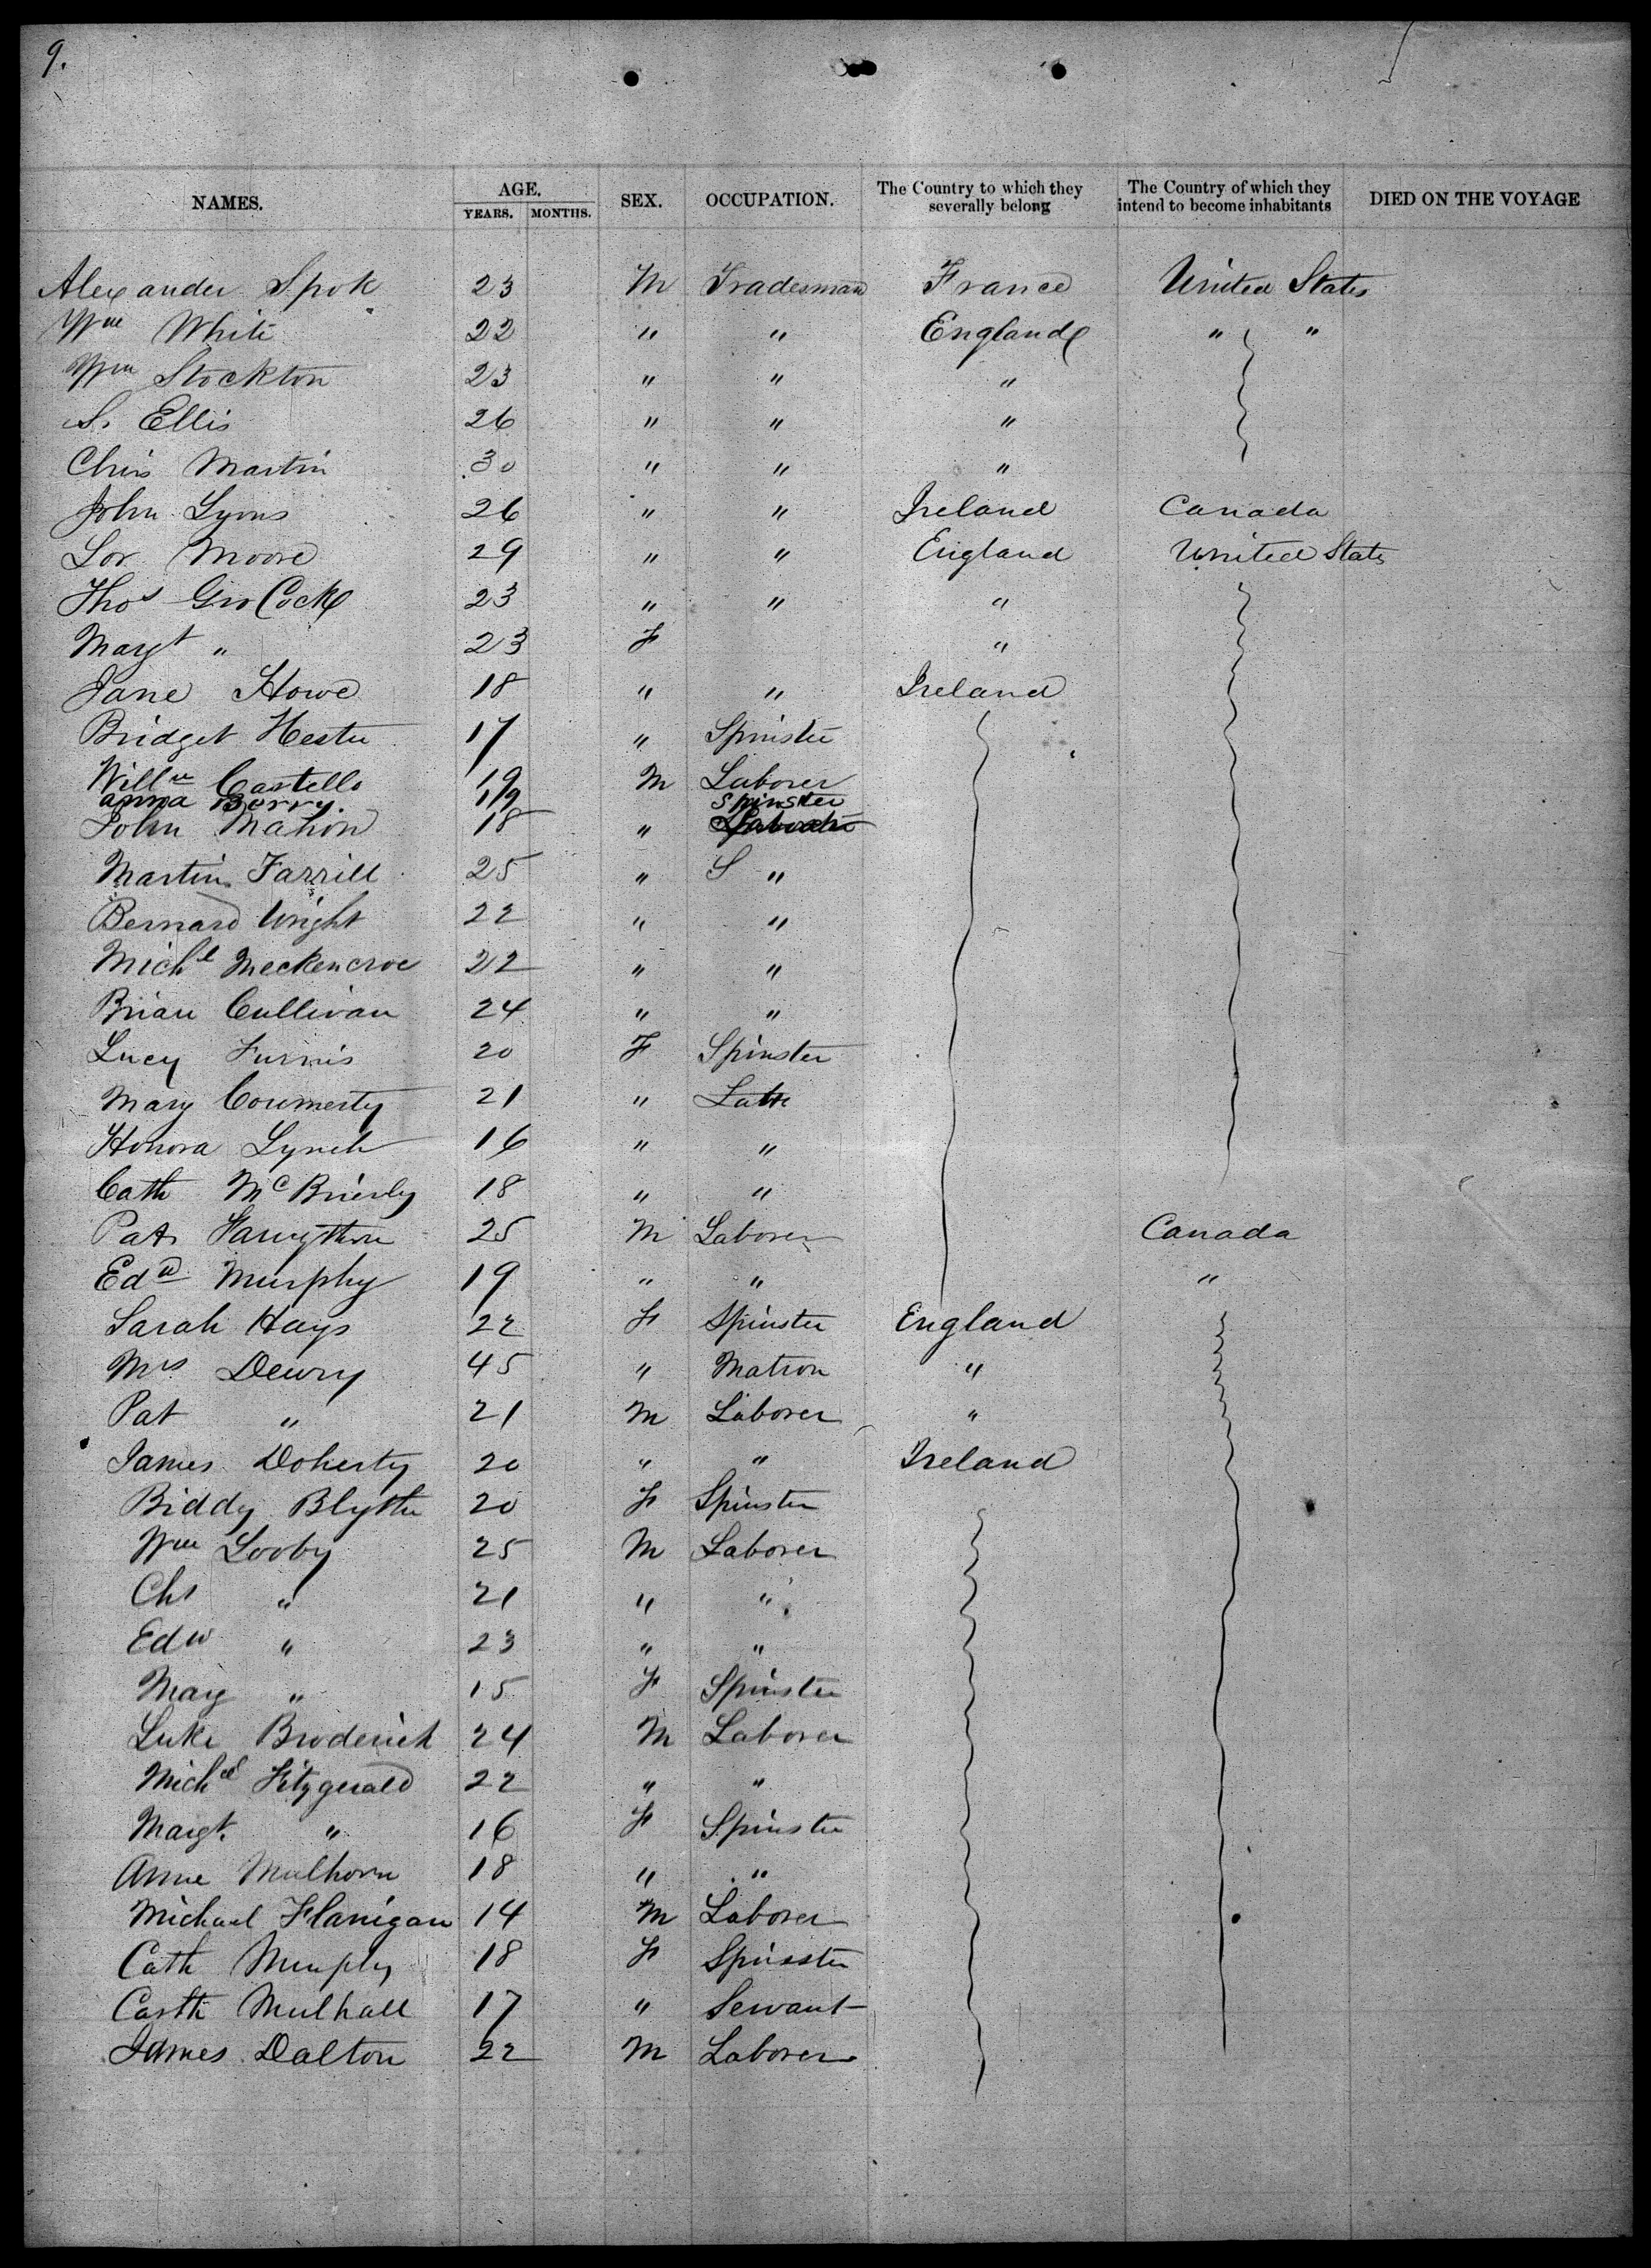 9.
NAMES. AGE. YEARS. MONTHS. SEX. OCCUPATION. The Country to which they severally belong The Country of which they intend to become inhabitants DIED ON THE VOYAGE
Alexander Spok 23 M Tradesman France United States
Wm White 22 " " England " "
Wm Stockton 23 " " "
S. Ellis 26 " " "
Chris Martin 30 " " "
John Lyons 26 " " Ireland Canada
Lor Moore 29 " " England United States
Thos GroCock 23 " " "
Margt " 23 F "
Jane Howe 18 " " Ireland
Bridget Hester 17 " Spinster
Willm Castello 19 M Laborer
anna Borry. 19 Spinster
John Mahon 18 "
Martin Farrill 25 " S "
Bernard Wright 22 " "
Michl Meckencroe 22 " "
Brian Cullivan 24 " "
Lucy Furnis 20 F Spinster
Mary Coumerty 21 "
Honora Lynch 16 " "
Cath McBrierly 18 " "
Pat 25 M Laborer Canada
Edwd Murphy 19 " " "
Sarah Hays 22 F Spinster England
Mrs Dewry 45 " Matron "
Pat " 21 M Laborer "
James Doherty 20 " " Ireland
Biddy Blythe 20 F Spinster
Wm Looby 25 M Laborer
Chs " 21 " "
Edw " 23 " "
Mary " 15 F Spinster
Luke Broderick 24 M Laborer
Michel Fitzgerald 22 " "
Margt. " 16 F Spinster
Anne Mulhorn 18 " "
Michael Flanigan 14 M Laborer
Cath Murphy 18 F Spinster
Casth Mulhall 17 " Servant
James Dalton 22 M Laborer